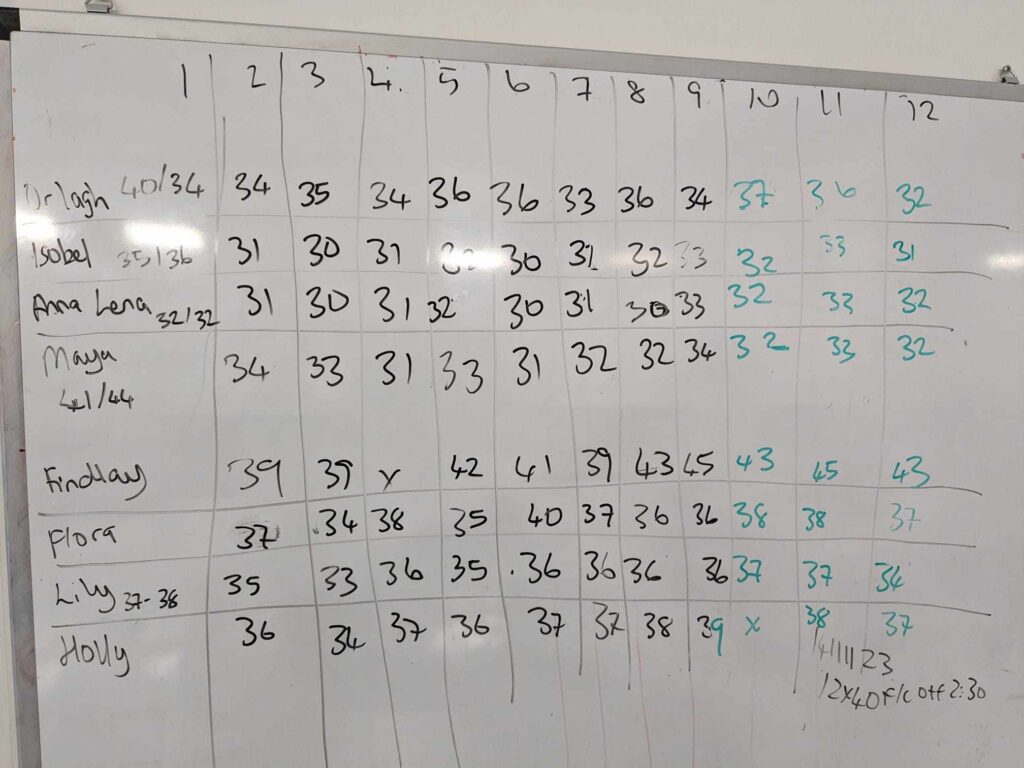 1 2 3 4. 5 6 7 8 9 10 11 12
Orlagh 40/34 34 35 34 36 36 33 36 34 37 36 32
Isobel 35/36 31 30 31 30 31 32 33 32 33 31
Anna Lena 32/32 31 30 31 32 30 31 30 33 32 33 32
Maya 34 33 31 33 31 32 32 34 32 33 32
41/44
Findlay 39 39 x 42 41 39 43 45 43 45 43
Flora 37 34 38 35 40 37 36 36 38 38 37
Lily 37-38 35 33 36 35 36 36 36 36 37 37 34
Holly 36 34 37 36 37 37 38 39 x 38 37
14/11/23
12x40 f/c off 2:30